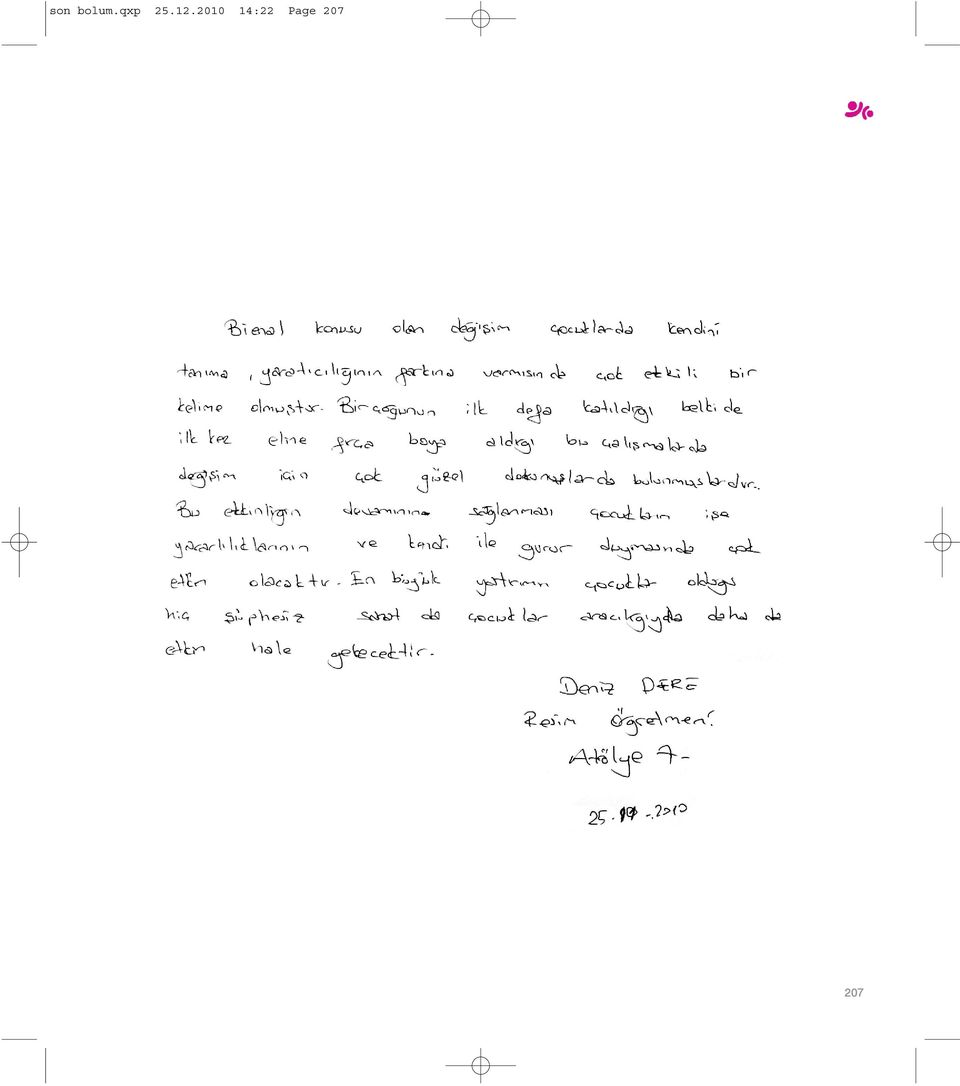 son bolum.qxp 25.12.2010 14:22 Page 207
Bienal konusu olan değişim çocuklarda kendini
tanıma, yaratıcılığının farkına varmısında çok etkili bir
kelime olmuştur. Birçoğunun ilk defa katıldığı belki de
ilk kez eline fırça boya aldığı bu çalışmalarda
değişim için çok güzel dokunuşlarda bulunmuşlardır.
Bu etkinliğin devamının sağlanması çocukların işe
yararlılıklarının ve kendi ile gurur duymasında çok
etkin olacaktır. En büyük yatırımın çocuklar olduğu
hiç şüphesiz sanat da çocuklar aracılığıyla daha da
etkin hale gelecektir.
Deniz DERE
Resim Öğretmeni
Atölye 7-
25. .2010
207